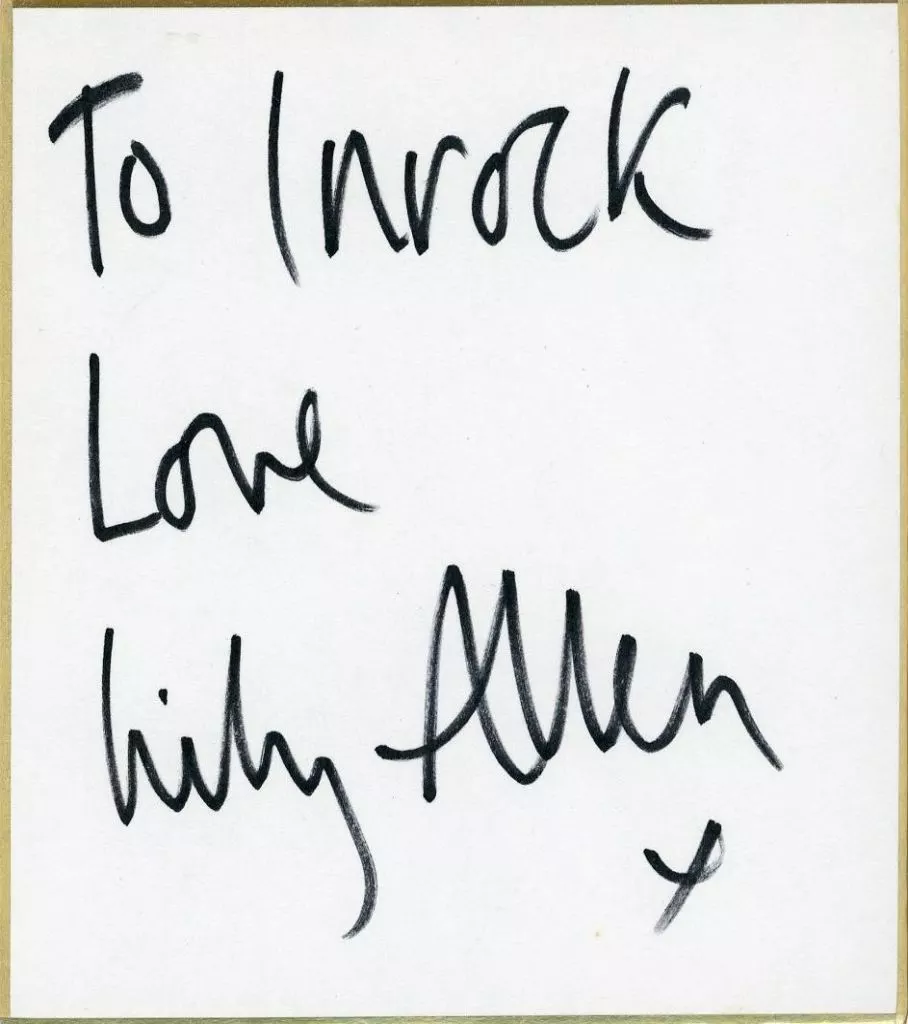 To Inrock
Love
Lily Allen
x